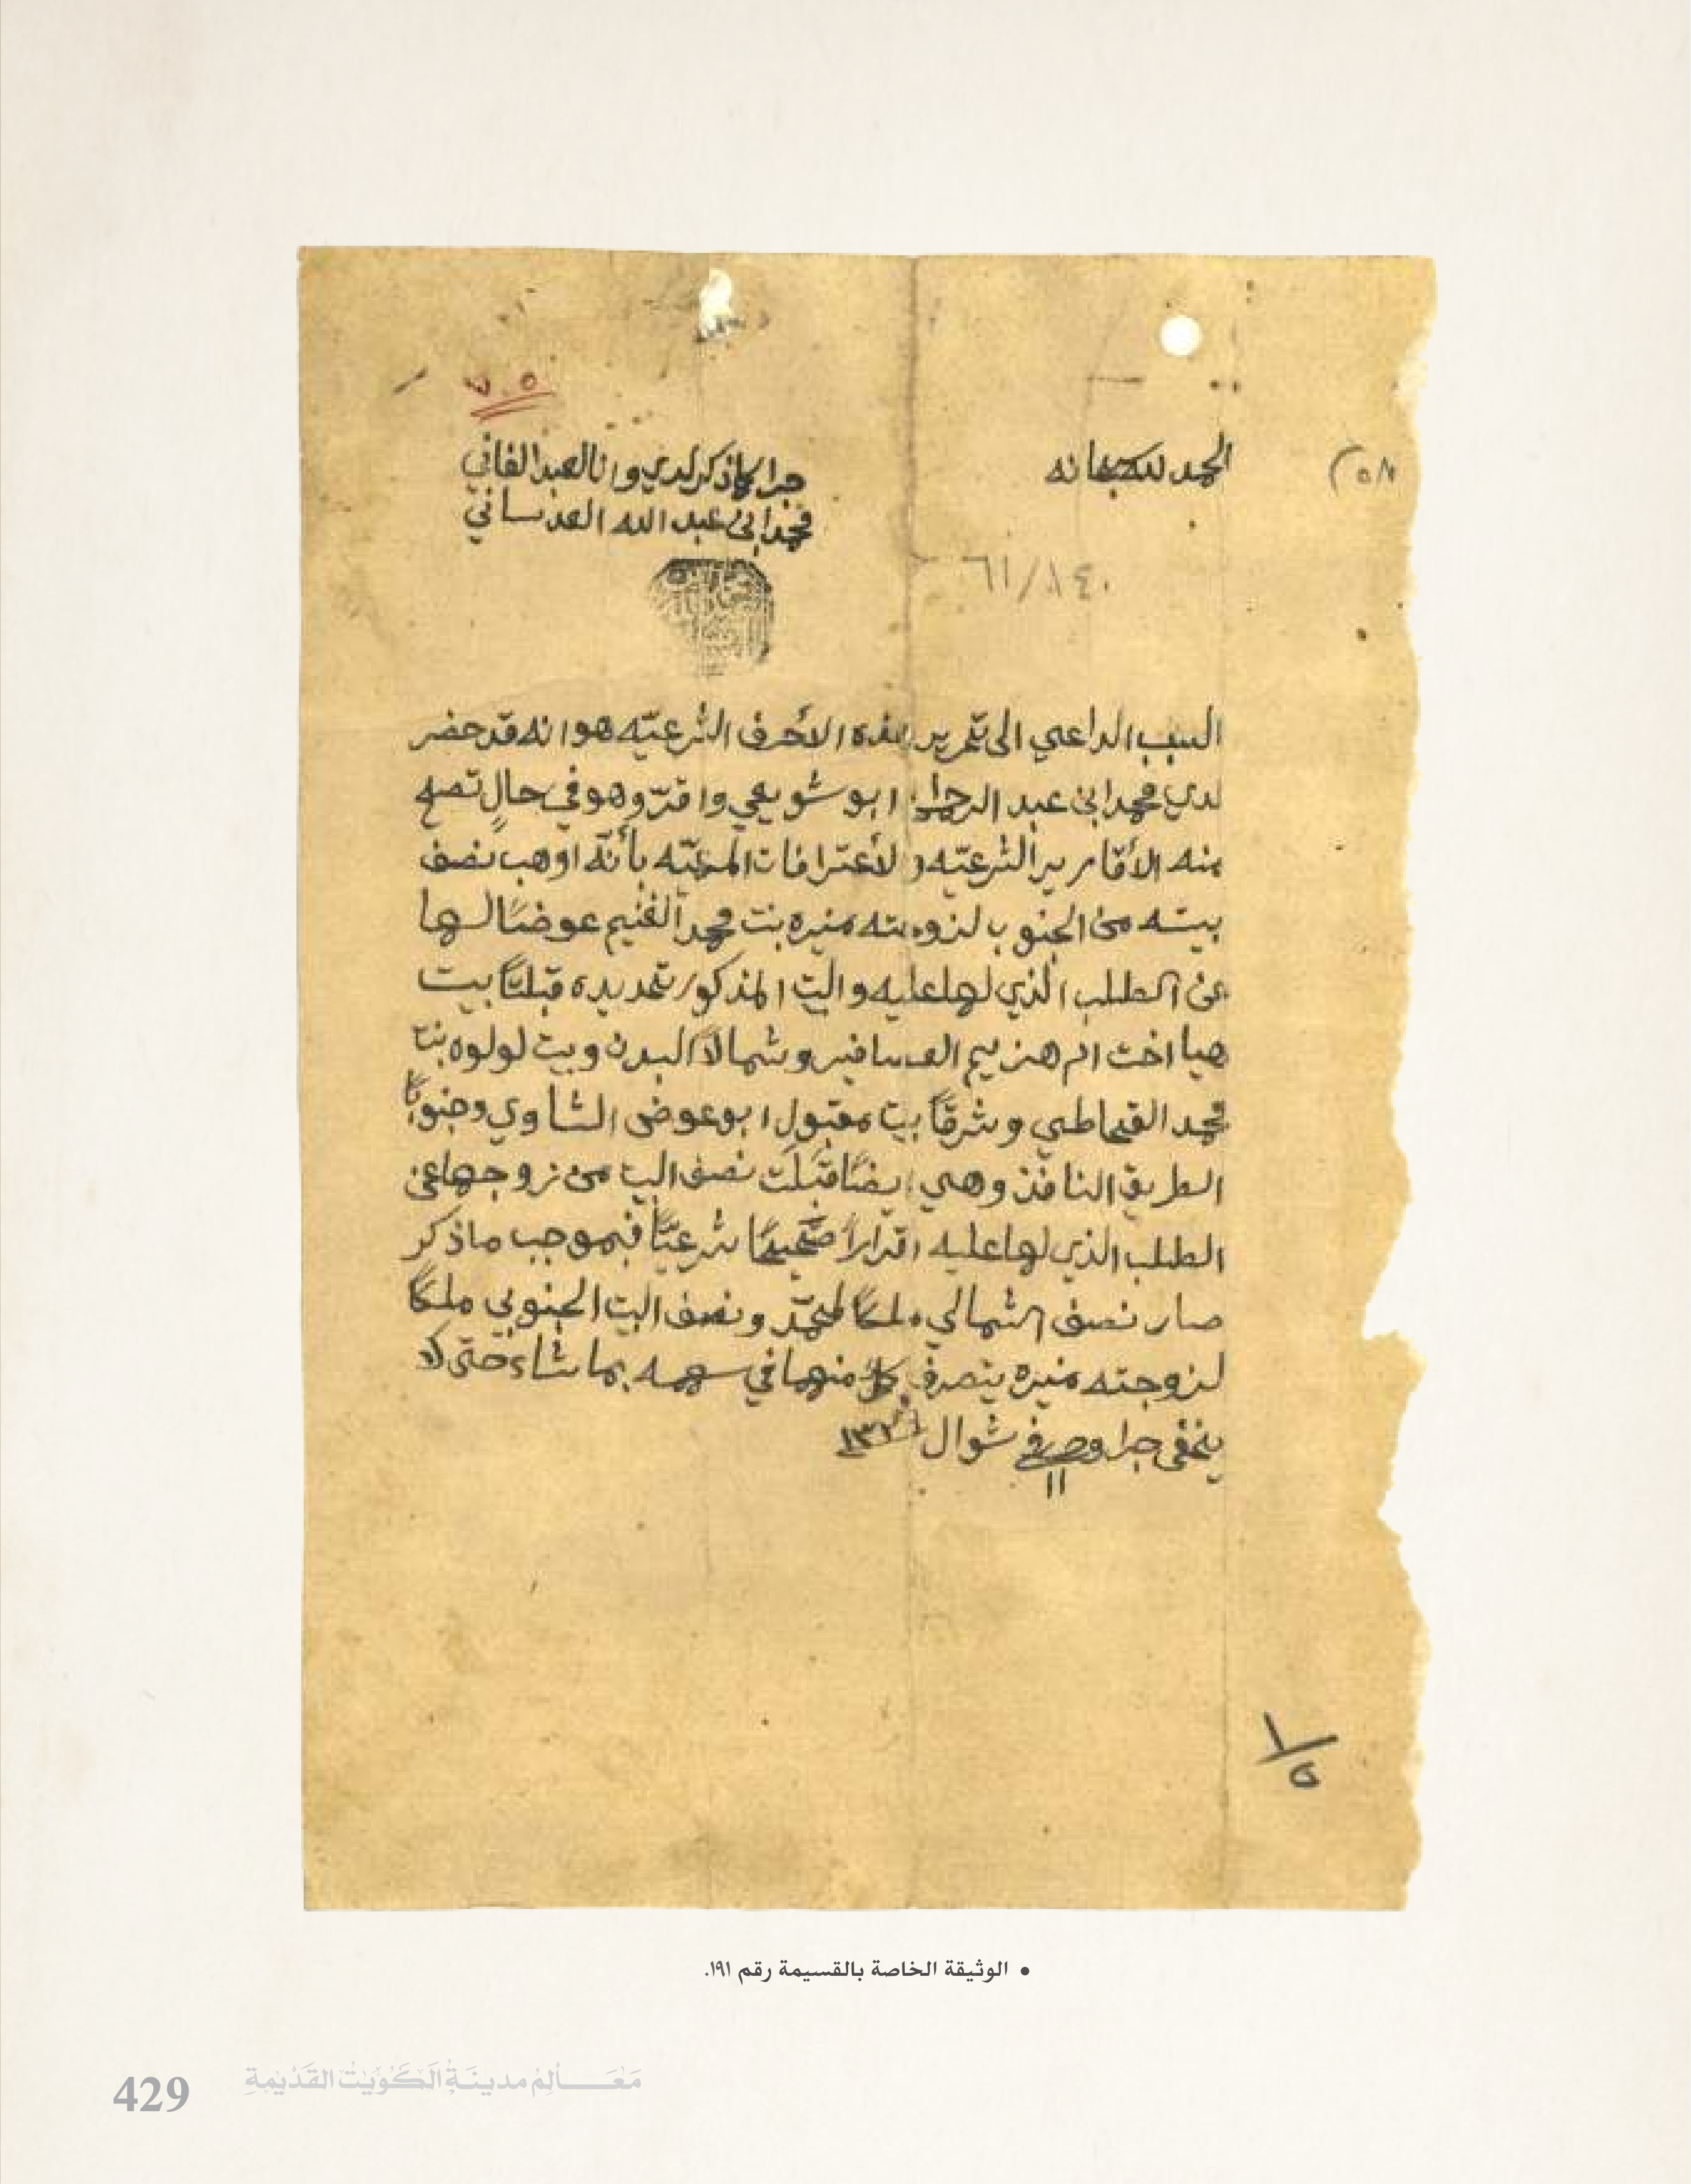 ٧٠٥
الحمد لله سبحانه
جرا كما ذكر لدي وانا العبد الفاني
محمد ابن عبد الله العدساني
٦١/٨٤٠
السبب الداعي الى تحرير هذه الأحرف الشرعيّه هو انه قد حضر
لدي محمد ابن عبد الرحمن ابو شويعي واقرّ وهو في حالٍ تصح
منه الأقارير الشرعيّه والأعترافات المرعيّه بأنّه اوهب نصف
بيته من الجنوب لزوجته منيره بنت محمد الغنيم عوضًا لها
عن الطلب الذي لها عليه والبيت المذكور تحديده قبلتًا بيت
هيا اخت ام هزيم العسافير وشمالاً البدن وبيت لولوه بنت
محمد القحاطي وشرقًا بيت مقبول ابو عوض الشاوي وجنوبًا
الطريق النافذ وهي ايضًا قَبلَت نصف البيت من زوجها عن
الطلب الذي لها عليه اقرارًا صحيحًا شرعيًّا فبموجب ما ذكر
صار نصف الشمالي ملكًا لمحمّد ونصف البيت الجنوبي ملكًا
لزوجته منيره يتصرف كلٌ منهما في سهمه بما شاء حتى لا
يخفى جرا وحرر في ١١ شوال
١
٥
• الوثيقة الخاصة بالقسيمة رقم ١٩١.
429 مَعَـالِم مدينَةِ الكُوَيْتِ القَدْيمةِ